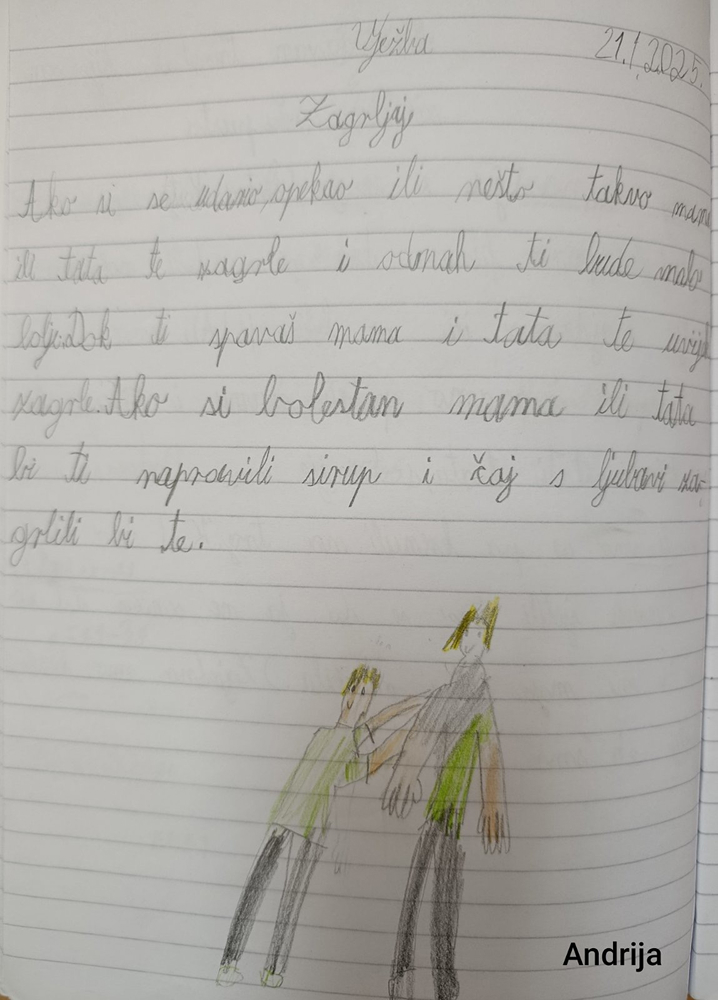 Vježba 21.1.2025.
Zagrljaj
Ako si se udario, opekao ili nešto takvo mama
ili tata te zagrle i odmah ti bude malo
bolje. Dok ti spavaš mama i tata te uvijek
zagrle. Ako si bolestan mama ili tata
bi ti napravili sirup i čaj s ljubavi za-
grlili bi te.
Andrija